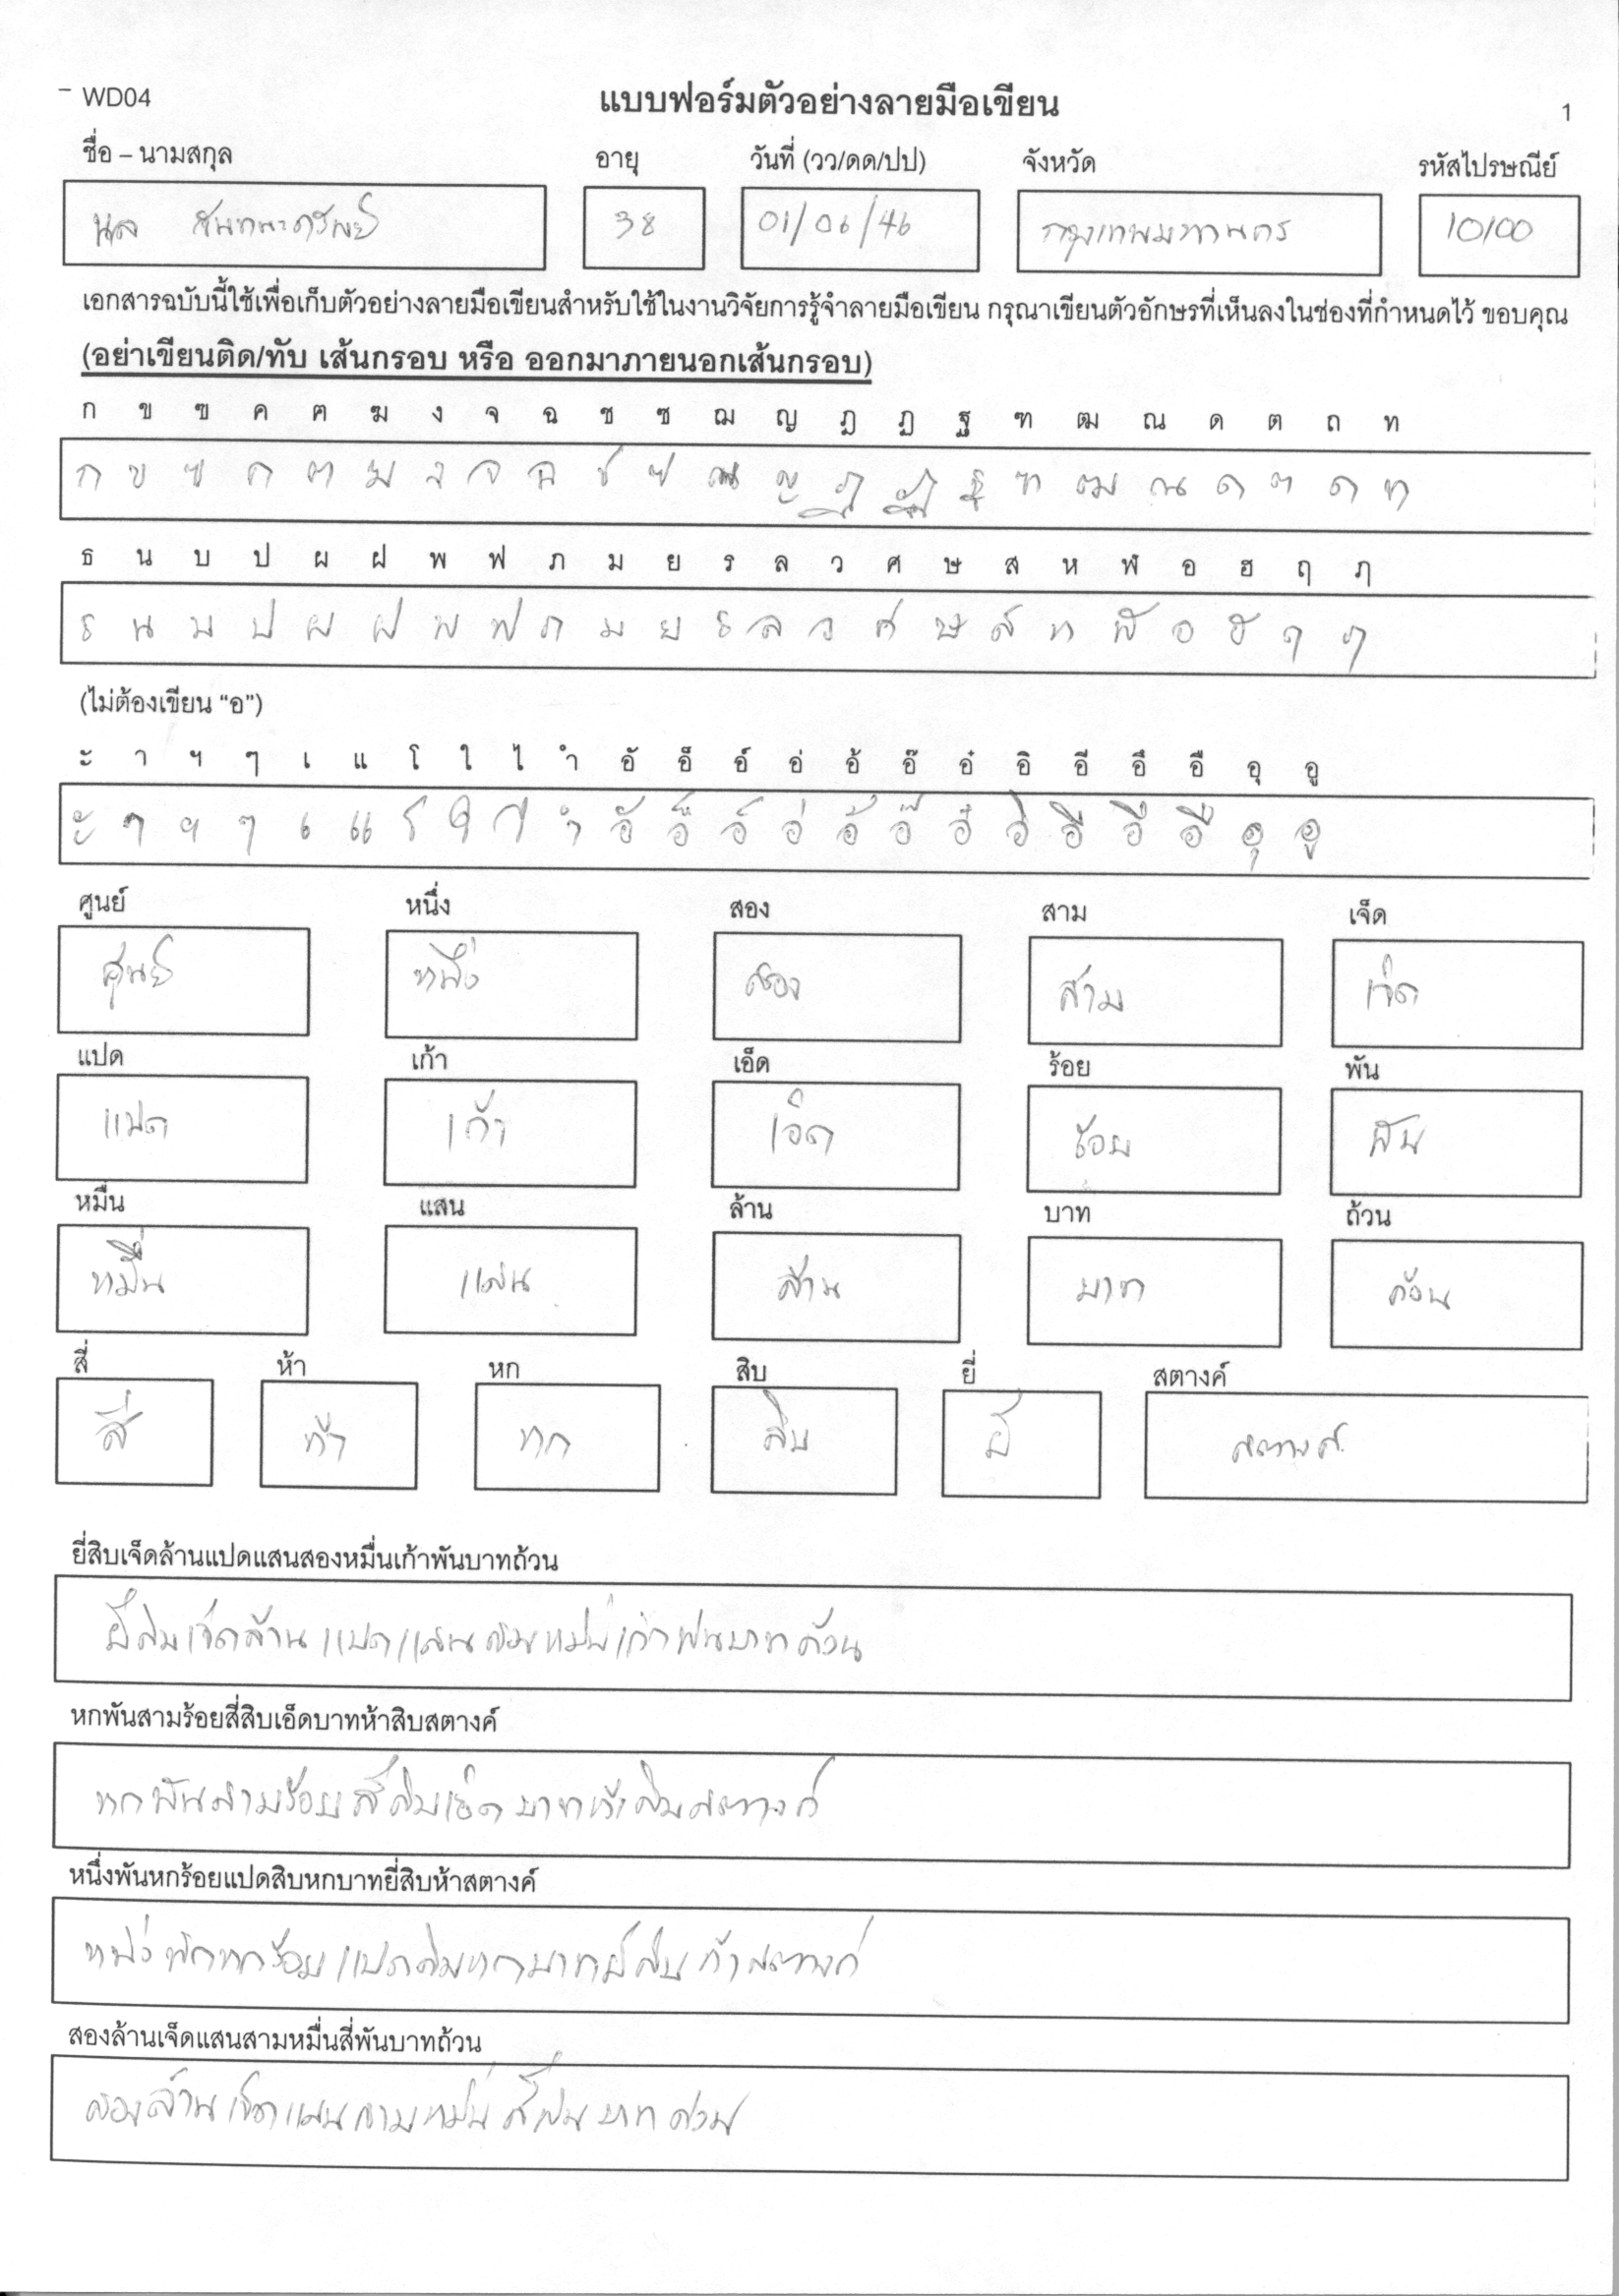 WD04 แบบฟอร์มตัวอย่างลายมือเขียน 1
ชื่อ – นามสกุล อายุ วันที่ (วว/ดด/ปป) จังหวัด รหัสไปรษณีย์
38 01/06/46 กรุงเทพมหานคร 10100
เอกสารฉบับนี้ใช้เพื่อเก็บตัวอย่างลายมือเขียนสำหรับใช้ในงานวิจัยการรู้จำลายมือเขียน กรุณาเขียนตัวอักษรที่เห็นลงในช่องที่กำหนดไว้ ขอบคุณ
(อย่าเขียนติด/ทับ เส้นกรอบ หรือ ออกมาภายนอกเส้นกรอบ)
ก ข ฃ ค ฅ ฆ ง จ ฉ ช ซ ฌ ญ ฎ ฏ ฐ ฑ ฒ ณ ด ต ถ ท
ก ข ฃ ค ฅ ฆ ง จ ฉ ช ซ ฌ ญ ฎ ฏ ฐ ฑ ฒ ณ ด ต ถ ท
ธ น บ ป ผ ฝ พ ฟ ภ ม ย ร ล ว ศ ษ ส ห ฬ อ ฮ ฤ ฦ
ธ น บ ป ผ ฝ พ ฟ ภ ม ย ร ล ว ศ ษ ส ห ฬ อ ฮ ฤ ฦ
(ไม่ต้องเขียน “อ”)
ะ า ฯ ๆ เ แ โ ใ ไ ำ อั อ็ อ์ อ่ อ้ อ๊ อ๋ อิ อี อึ อื อุ อู
ะ า ฯ ๆ เ แ โ ใ ไ ำ อั อ็ อ์ อ่ อ้ อ๊ อ๋ อิ อี อึ อื อุ อู
ศูนย์ หนึ่ง สอง สาม เจ็ด
ศูนย์ หนึ่ง สอง สาม เจ็ด
แปด เก้า เอ็ด ร้อย พัน
แปด เก้า เอ็ด ร้อย พัน
หมื่น แสน ล้าน บาท ถ้วน
หมื่น แสน ล้าน บาท ถ้วน
สี่ ห้า หก สิบ ยี่ สตางค์
สี่ ห้า หก สิบ ยี่ สตางค์
ยี่สิบเจ็ดล้านแปดแสนสองหมื่นเก้าพันบาทถ้วน
ยี่สิบเจ็ดล้านแปดแสนสองหมื่นเก้าพันบาทถ้วน
หกพันสามร้อยสี่สิบเอ็ดบาทห้าสิบสตางค์
หกพันสามร้อยสี่สิบเอ็ดบาทห้าสิบสตางค์
หนึ่งพันหกร้อยแปดสิบหกบาทยี่สิบห้าสตางค์
หนึ่งพันหกร้อยแปดสิบหกบาทยี่สิบห้าสตางค์
สองล้านเจ็ดแสนสามหมื่นสี่พันบาทถ้วน
สองล้านเจ็ดแสนสามหมื่นสี่พันบาทถ้วน